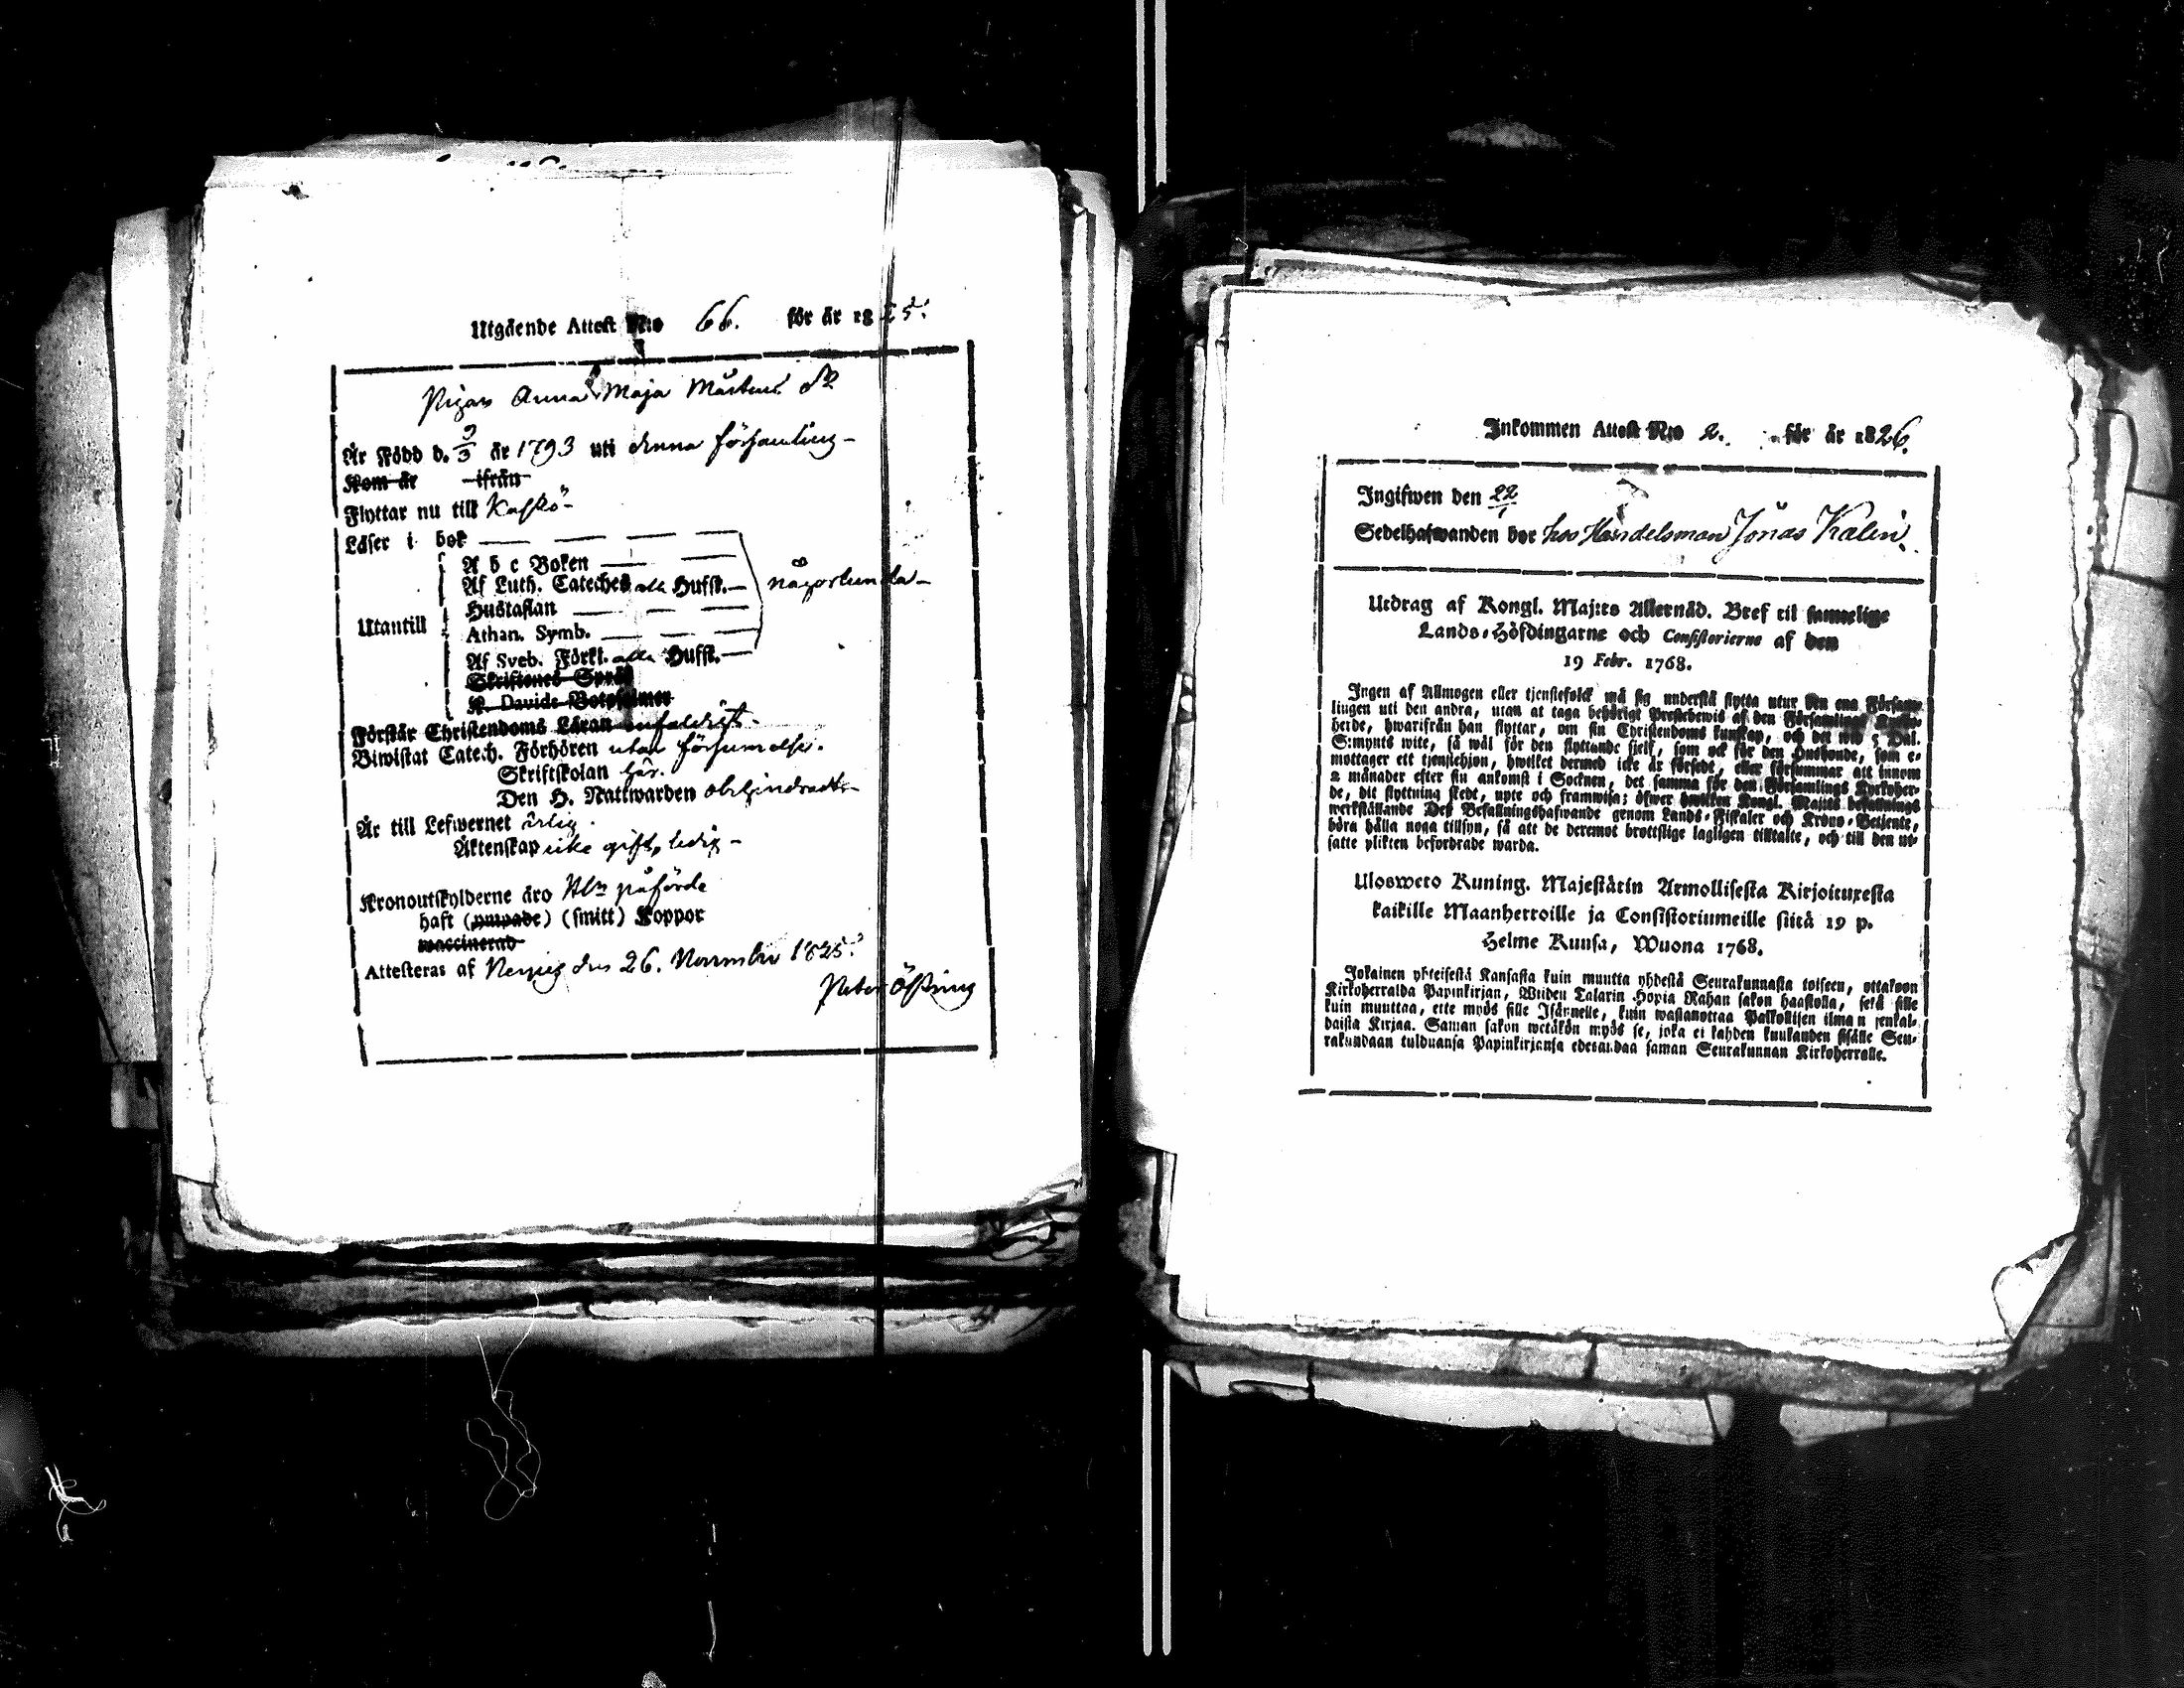 Utgående Attest N:o 66. för år 1825.
Pigan Anna Maja Mårtens dr
Är Född d. 9/3 år 1793 uti denna församling
Kom år ifrån
Flyttar nu till Kaskö
Läser i bok
A b c Boken
Af Luth. Cateches alla Hufst. någorlunda
Hustaflan
Utantill
Athan. Symb.
Af Sveb. Förkl. alla Hufst.
Skriftenes Språk
K. Davids Botpsalmer
Förstår Christendoms Läran enfaldigt
Biwistat Catech. Förhören utan försummelse.
Skriftskolan här.
Den H. Nattwarden obehindradt
Är till Lefwernet ärlig.
Äktenskap icke gift, ledig
Kronoutskylderne äro påförde
haft (ympade) (smitt) Koppor
waccinerad
Attesteras af Nerpes den 26. November 1825.
Peter Östring
Inkommen Attest N:o 2. för år 1826.
Ingifwen den 22/1
Sedelhafwanden bor hos Handelsman Jonas Kalin.
Utdrag af Kongl. Maj:ts Allernåd. Bref til samtelige
Lands-Höfdingarne och Consistorierne af den
19 Febr. 1768.
Ingen af Allmogen eller tjenstefolck må sig understå flytta utur den ena Försam-
lingen uti den andra, utan at taga behörigt Prestebewis af den Församlings Kyrko-
herde, hwarifrån han flyttar, om sin Christendoms kunskap, och det wid 5 Dal.
S:mynts wite, så wäl för den flyttande sjelf, som ock för den Husbonde, som e-
mottager ett tjenstehjon, hwilket dermed icke är försedt, eller försummar att innom
2 månader efter sin ankomst i Socknen, det samma för den Församlings Kyrkoher-
de, dit flyttning skedt, upte och framwisa; öfwer hwilken Kongl. Maj:ts befallnings
werkställande Dess Befallningshafwande genom Lands-Fiskaler och Krono-Betjente,
böra hålla noga tillsyn, så att de deremot brottslige lagligen tilltalte, och till den ut-
satte plikten befordrade warda.
Ulosweto Kuning. Majestätin Armollisesta Kirjoituxesta
kaikille Maanherroille ja Consistoriumeille siitä 19 p.
Helme Kuusa, Wuona 1768.
Jokainen yhteisestä Kansasta kuin muutta yhdestä Seurakunnasta toiseen, ottakoon
Kirkoherralda Papinkirjan, Wiiden Talarin Hopia Rahan sakon haastolla, sekä sille
kuin muuttaa, ette myös sille Isännelle, kuin wastanottaa Palkollisen ilman senkal-
daista Kirjaa. Saman sakon wetäkön myös se, joka ei kahden kuukauden sisälle Seu-
rakundaan tulduansa Papinkirjansa edesandaa saman Seurakunnan Kirkoherralle.